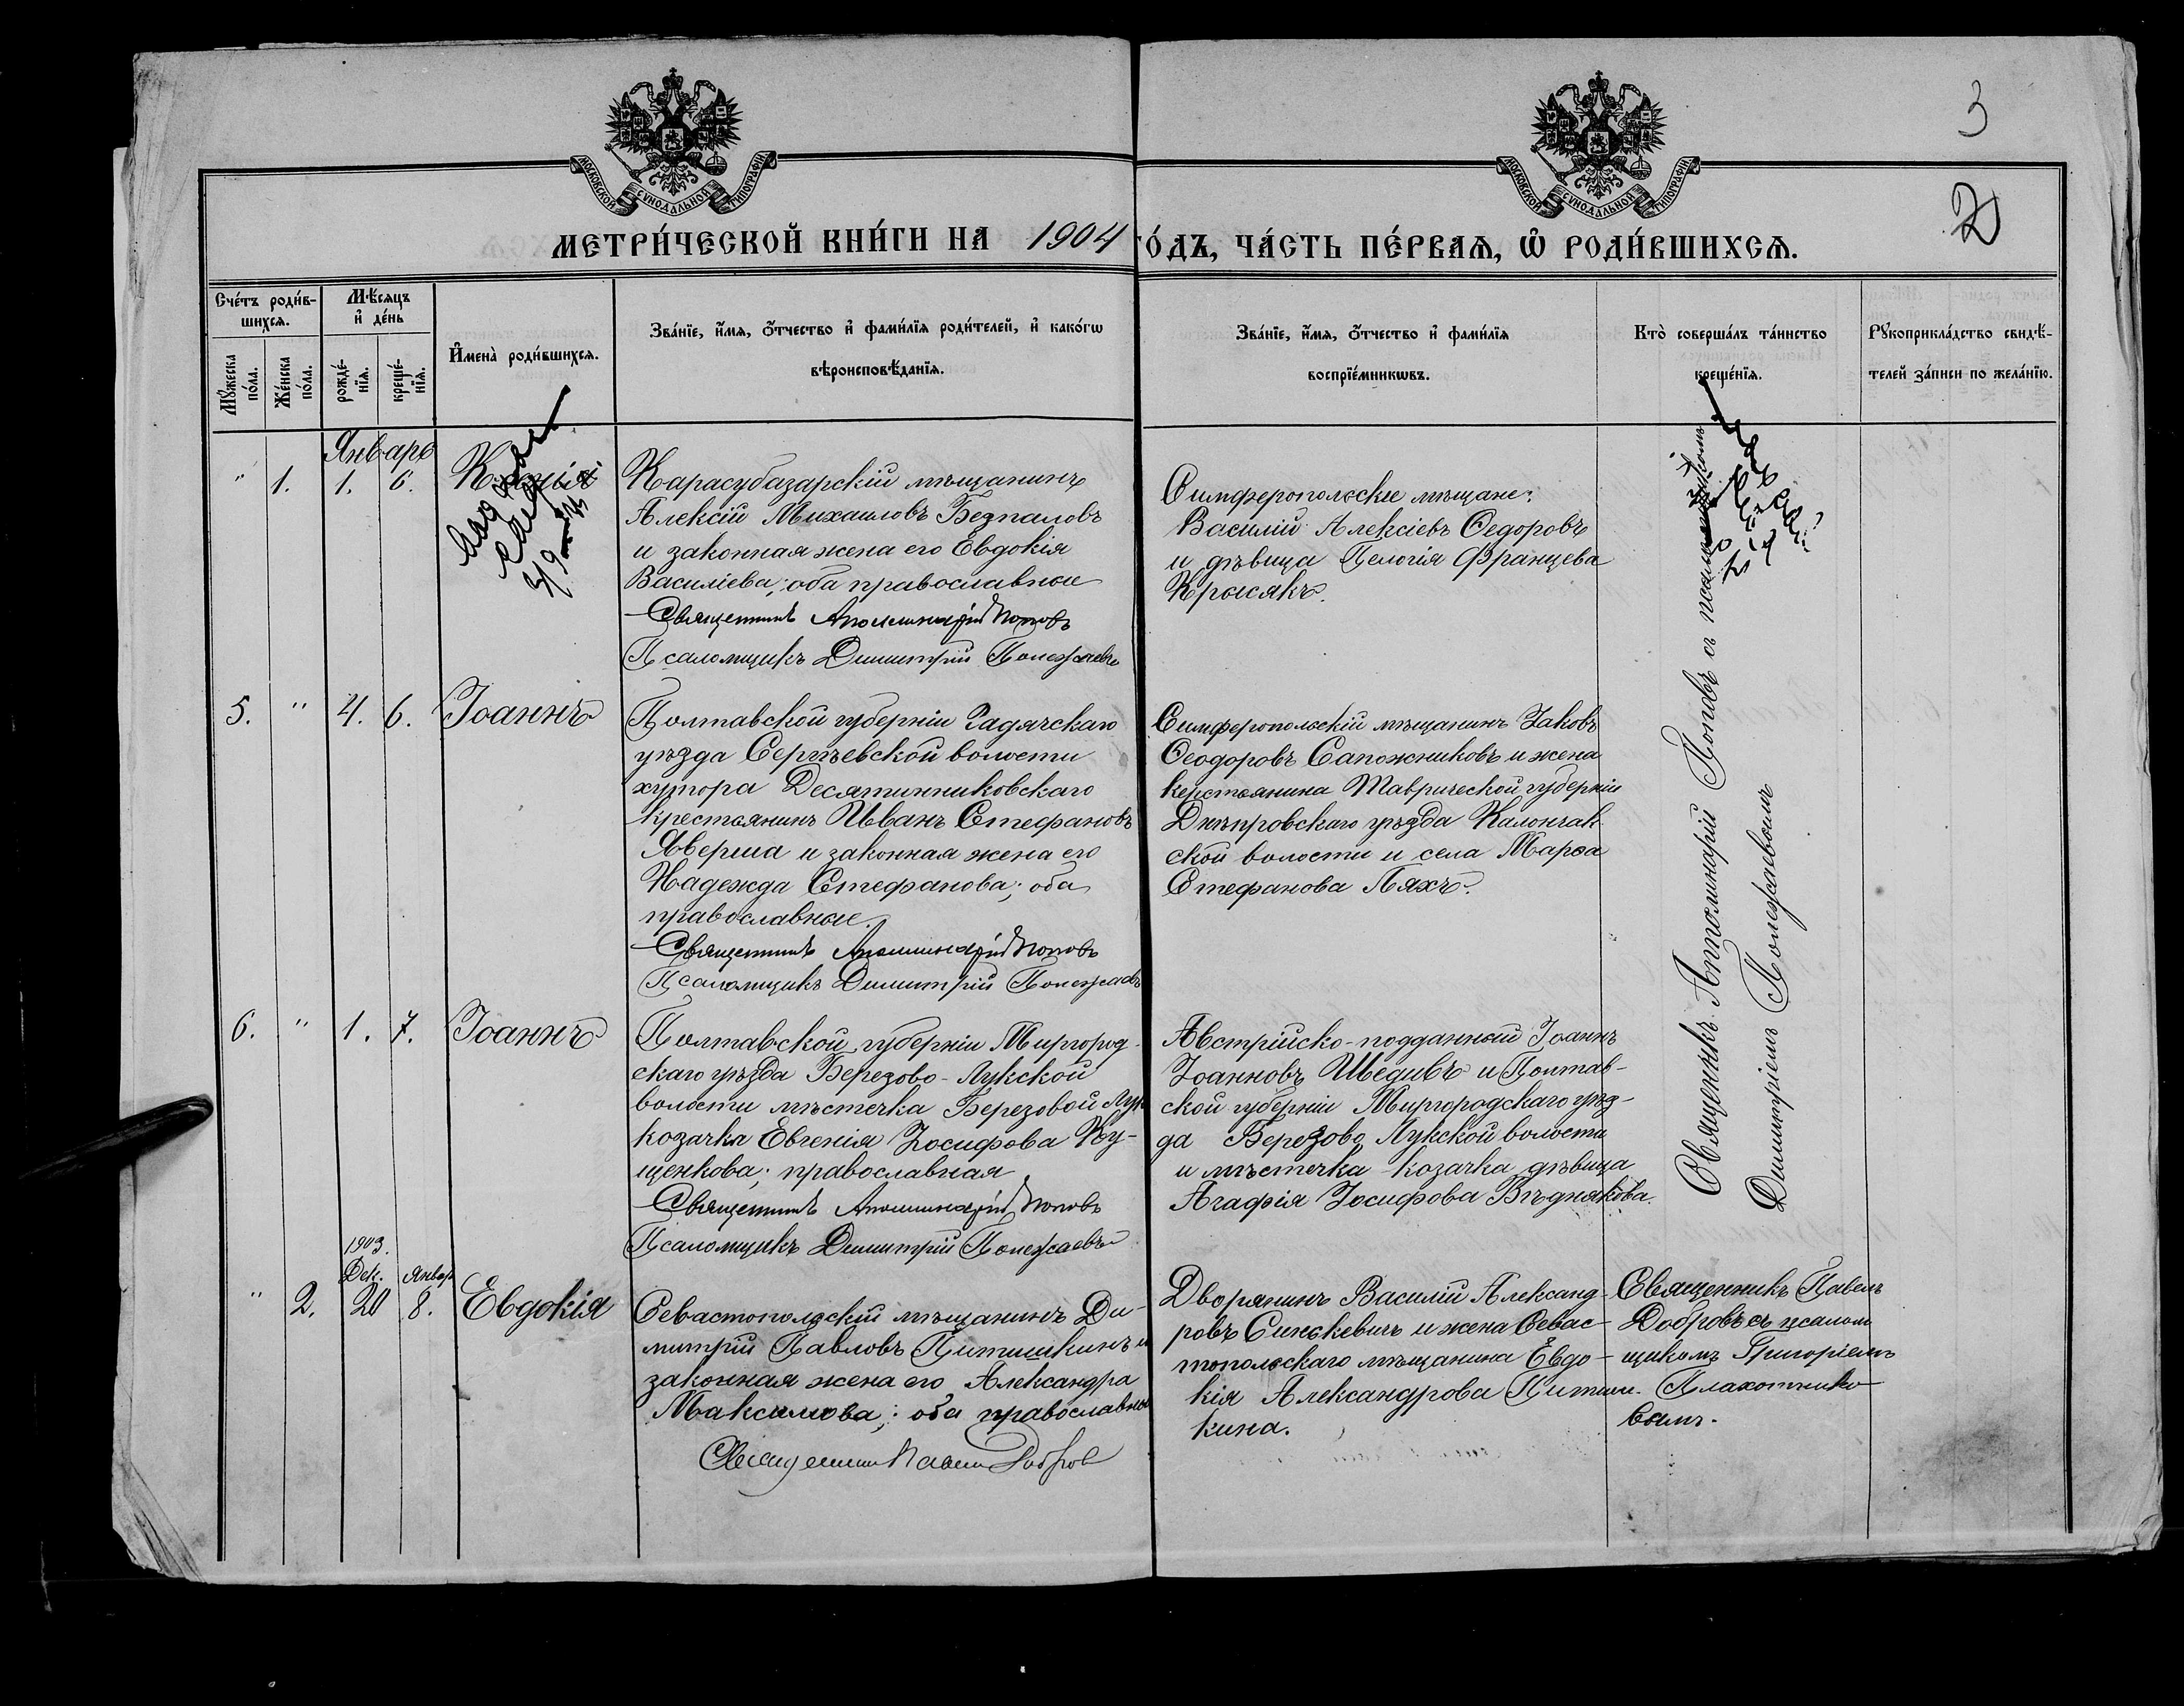 3
2
МОСКОВСКОЙ СѴНОДАЛЬНОЙ ТИПОГРАФІИ
МОСКОВСКОЙ СѴНОДАЛЬНОЙ ТИПОГРАФІИ
МЕТРИ́ЧЕСКОЙ КНИ́ГИ НА 1904 ГО́ДЪ, ЧА́СТЬ ПЕ́РВАѦ, Ѡ РОДИ́ВШИХСѦ.
Сче́тъ роди́в-
шихсѧ.
Мꙋжеска по́ла.
Же́нска по́ла.
Мѣ́сѧцъ
и҆ де́нь
рожде́-
нїѧ.
креще́-
нїѧ.
И҆мена̀ роди́вшихсѧ.
Зва́нїе, и҆́мѧ, ѻ҆́тчество и҆ фами́лїѧ роди́телей, и҆ како́гѡ
вѣроисповѣ́данїѧ.
Зва́нїе, и҆́мѧ, ѻ҆́тчество и҆ фами́лїѧ
воспрїе́мникѡвъ.
Кто̀ соверша́лъ та́инство
креще́нїѧ.
Рꙋкоприкла́дство свидѣ́-
телей за́писи по жела́нїю.
Январь
" 1. 1. 6.
Карасубазарскій мѣщанинъ
Алексій Михаиловъ Безпаловъ
и законная жена его Евдокія
Василіева; оба православные
Священникъ Аполлинарій Поповъ
Псаломщикъ Димитрій Полежаевъ
Симферопольскіе мѣщане:
Василій Алексіевъ Ѳедоровъ
и дѣвица Пелогія Францева
Крысякъ.
5. " 4. 6. Іоаннъ
Полтавской губерніи Гадячскаго
уѣзда Сергѣевской волости
хутора Десятинниковскаго
крестьянинъ Иванъ Стефановъ
Яверша и законная жена его
Надежда Стефанова; оба
православные.
Священникъ Аполлинарій Поповъ
Псаломщикъ Димитрій Полежаевъ
Симферопольскій мѣщанинъ Іаковъ
Ѳеодоровъ Сапожниковъ и жена
керстьянина Таврической губерніи
Днѣпровскаго уѣзда Калончак-
ской волости и села Марѳа
Стефанова Ляхъ.
6. " 1. 7. Іоаннъ
Полтавской губерніи Миргород-
скаго уѣзда Березово-Лукской
волости мѣстечка Березовой Лук
козачка Евгенія Іосифова Ку-
щенкова; православная
Священникъ Аполлинарій Поповъ
Псаломщикъ Димитрій Полежаевъ
Австрійско-подданный Іоаннъ
Іоанновъ Шедивъ и Полтав-
ской губерніи Миргородскаго уѣз-
да Березово Лукской волости
и мѣстечка козачка дѣвица
Агафія Іосифова Бѣднякова.
Священникъ Апполинарій Поповъ съ псаломщикомъ
Димитріемъ Полежаевымъ
1903.
Дек. Январ
" 2. 20 8. Евдокія
Севастопольскій мѣщанинъ Ди-
митрій Павловъ Питишкинъ и
законная жена его Александра
Максимова; оба православные
Священникъ Павелъ Добровъ
Дворянинъ Василій Александ-
ровъ Синькевичъ и жена Севас-
топольскаго мѣщанина Евдо-
кія Александрова Питиш-
кина.
Священникъ Павелъ
Добровъ съ псалом
щикомъ Григоріемъ
Плахотнико
вымъ.